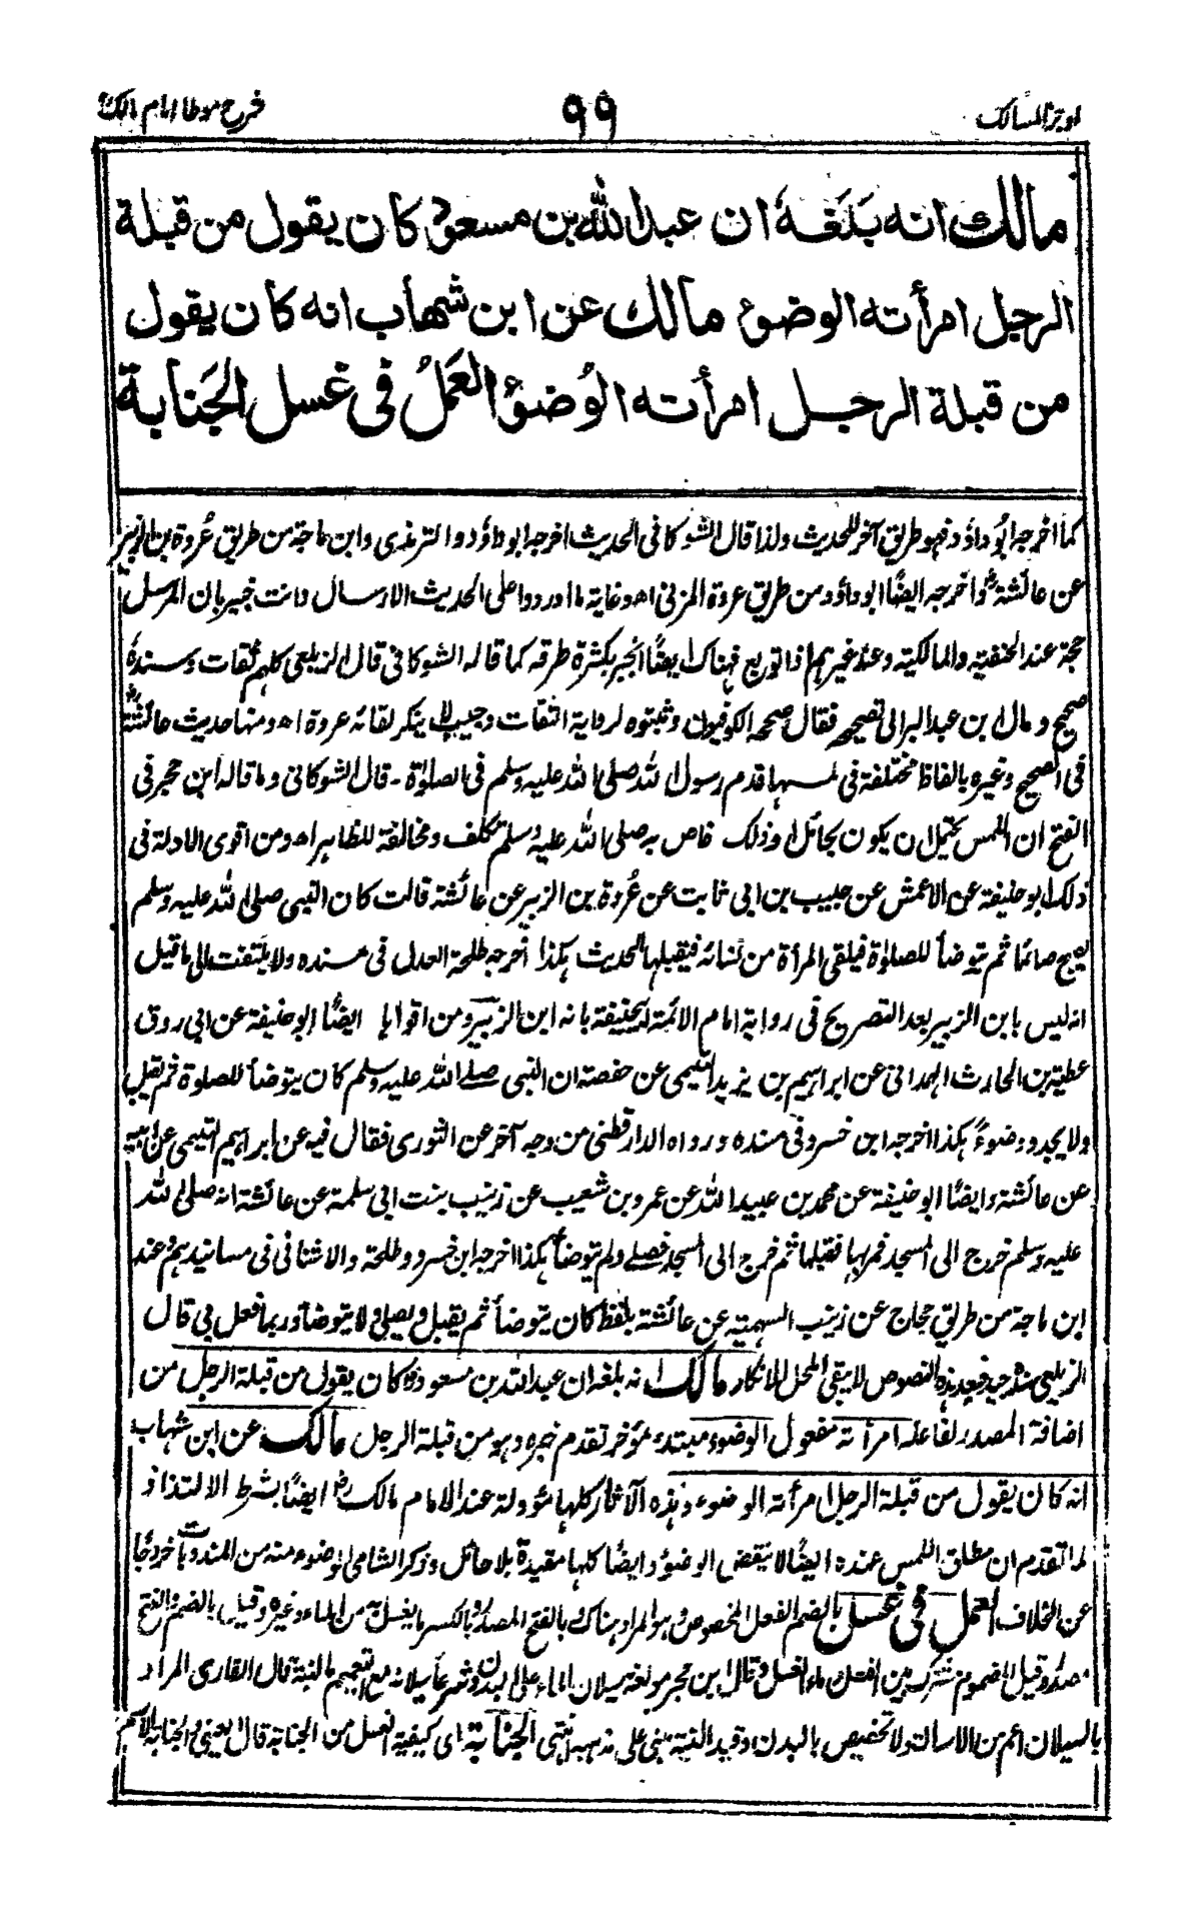 اوجز المسالك ٩٩ شرح موطا امام مالك
مالك انه بَلَغَهٗ ان عبد الله بن مسعود كان يقول من قبلة
الرجل امرأته الوضوء مالك عن ابن شهاب انه كان يقول
من قبلة الرجل امرأته الوُضوءُ العَمَلُ فی غسل الجَنابة
كما اخرجه ابُو داؤد فهو طريق آخر للحديث ولذا قال الشوكانى الحديث اخرجه ابو داؤد والترمذى وابن ماجة من طريق عُروة بن الزبير
عن عائشة واخرجه ايضًا ابو داؤد من طريق عروة المزنى اهـ وغاية ما اوردوا على الحديث الارسال وانت خبير بان المرسل
حجة عند الحنفية والمالكية وعند غيرهم اذا توبع فهناك ايضًا الجبر بكثرة طرقه كما قاله الشوكانى قال الزيلعى كلهم ثقات وسنده
صحيح ومال ابن عبد البر الى تصحيحه فقال صححه الكوفيون وثبتوه لرواية الثقات وحبيب لا ينكر لقائه عروة اهـ ومنها حديث عائشة
فى الصحيح وغيره بالفاظ مختلفة فى لمسها قدم رسول الله صلى الله عليه وسلم فى الصلوٰة - قال الشوكانى وما قاله ابن حجر فى
الفتح ان اللمس يحتمل ان يكون بحائل او ذلك خاص به صلى الله عليه وسلم تكلف ومخالفة للظاهر اهـ ومن اقوى الادلة فى
ذلك ابو حنيفة عن الاعمش عن حبيب بن ابى ثابت عن عُروة بن الزبير عن عائشة قالت كان النبى صلى الله عليه وسلم
يصبح صائما ثم يتوضأ للصلوٰة فيلقى المرأة من نسائه فيقبلها الحديث هكذا اخرجه طلحة العدل فى مسنده ولا يلتفت الى ما قيل
انه ليس بابن الزبير بعد التصريح فى رواية امام الائمة ابى حنيفة بانه ابن الزبير ومن اقواها ايضًا ابو حنيفة عن ابى روق
عطية بن الحارث الهمدانى عن ابراهيم بن يزيد التيمى عن حفصة ان النبى صلے الله عليه وسلم كان يتوضأ للصلوة ثم يقبل
ولا يجدد وضوءً هكذا اخرجه ابن خسرو فى مسنده ورواه الدارقطنى من وجه آخر عن الثورى فقال فيه عن ابراهيم التيمى عن ابيه
عن عائشة وايضًا ابو حنيفة عن محمد بن عبيد الله عن عمرو بن شعيب عن زينب بنت ابى سلمة عن عائشة انه صلى الله
عليه وسلم خرج الى المسجد فمر بها فقبلها ثم خرج الى المسجد فصلے ولم يتوضأ هكذا اخرجه ابن خسرو وطلحة والاشنانى فى مسانيدهم وعند
ابن ماجة من طريق حجاج عن زينب السهمية عن عائشة بلفظ كان يتوضأ ثم يقبل ويصلى ولا يتوضأ وربما فعل بى قال
الزيلعى سنده جيد فبعد هذه النصوص لا يبقى المحل للانكار مالك انه بلغه ان عبد الله بن مسعود كان يقول من قبلة الرجل من
اضافة المصدر لفاعله امرأته مفعول الوضوء مبتدء مؤخر تقدم خبره وهو من قبلة الرجل مالك عن ابن شهاب
انه كان يقول من قبلة الرجل امرأته الوضوء وهذه الآثار كلها مؤولة عند الامام مالك ايضًا بشرط الالتذاذ
لما تقدم ان مطلق اللمس عنده ايضًا لا ينقض الوضوء وايضًا كلها مقيدة بلا حائل وذكر الشامى الوضوء منه من المندوبات خروجًا
عن الخلاف العمل فى غسل بالضم الفعل المخصوص وهو المراد هناك وبالفتح المصدر وبالكسر ما يغسل به من الماء وغيره وقيل بالضم والفتح
مصدر وقيل المضموم مشترك بين الفعل وماء الغسل وقال ابن حجر هو لغة سيلان الماء على البدن وشرعًا سيلانه مع التعميم بالنية قال القارى المراد
بالسيلان اعم من الاسالة ولا تخصيص بالبدن وقيد النية مبنى على مذهبه انتهى الجنابة اى كيفية الغسل من الجنابة قال العينى والجنابة الاسم